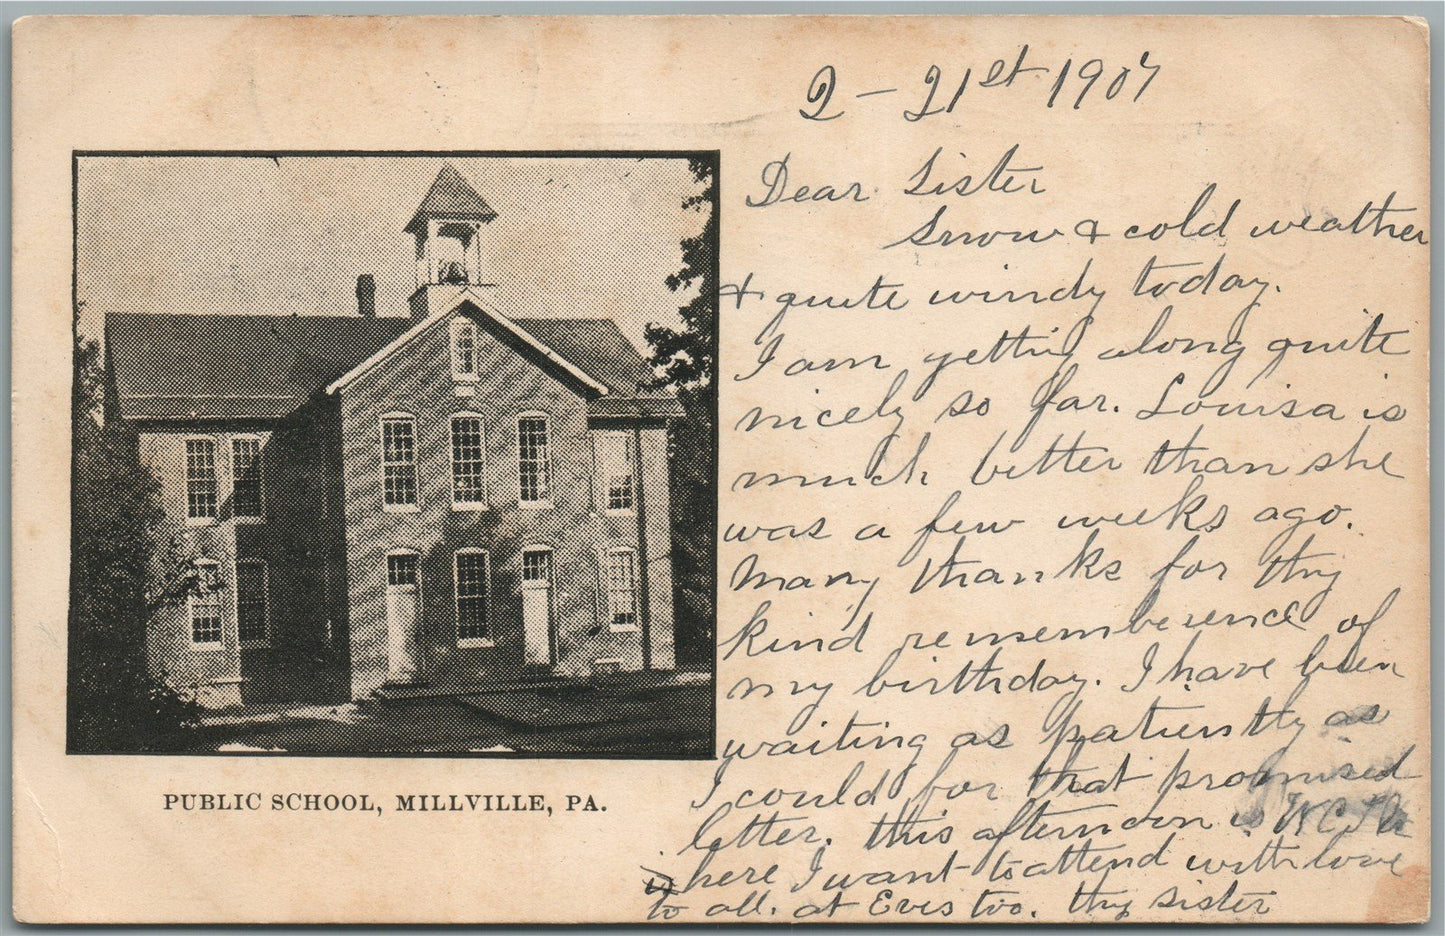 2 - 21st 1907
Dear Sister
Snow & cold weather
& quite windy today.
I am getting along quite
nicely so far. Louisa is
much better than she
was a few weeks ago.
Many thanks for thy
kind rememberence of
my birthday. I have been
waiting as patiently as
I could for that promised
letter. this afternoon is W C T U
here I want to attend with love
to all. at Eves too. thy sister
PUBLIC SCHOOL, MILLVILLE, PA.